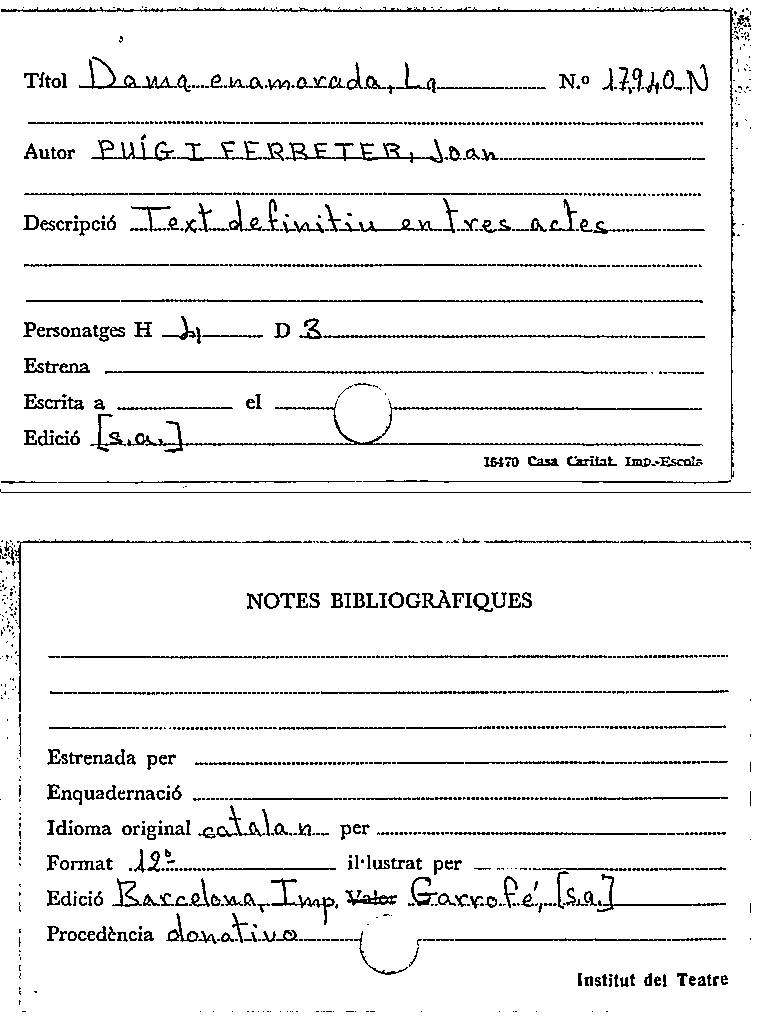 Títol Dama enamorada, La N.º 17940-N
Autor PUÍG I FERRETER, Joan
Descripció Text definitiu en tres actes
Personatges H 4 D 3
Estrena
Escrita a el
Edició [s.a.]
16470 Casa Caritat. Imp.-Escola
NOTES BIBLIOGRÀFIQUES
Estrenada per
Enquadernació
Idioma original catalan per
Format 12º il·lustrat per
Edició Barcelona, Imp. Valor Garrofé, [s.a.]
Procedència donativo
Institut del Teatre